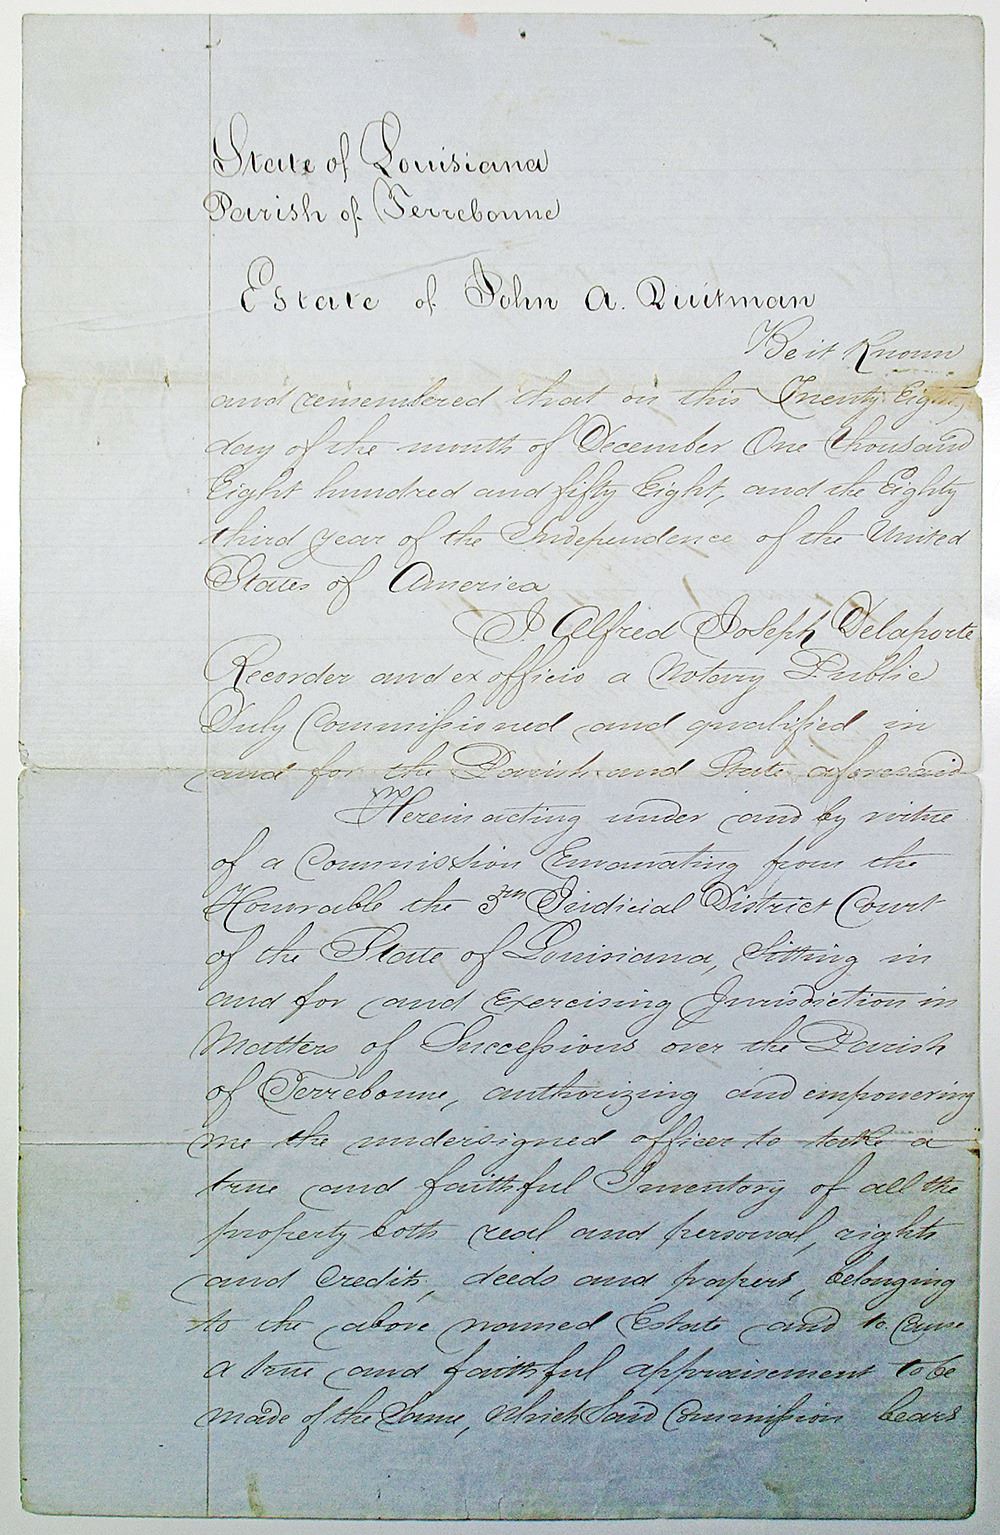 State of Louisiana
Parish of Terrebonne
Estate of John A. Quitman
Be it Known
and remembered that on this Twenty Eight
day of the month of December One thousand
Eight hundred and fifty Eight, and the Eighty
third year of the Independence of the United
States of America
I Alfred Joseph Delaporte
Recorder and ex officio a Notary Public
Duly Commissioned and qualified in
and for the Parish and State aforesaid
Herein acting under and by virtue
of a Commission Emanating from the
Honorable the 5th Judicial District Court
of the State of Louisiana, Sitting in
and for and Exercising Jurisdiction in
Matters of Successions over the Parish
of Terrebonne, authorizing and empowering
me the undersigned officer to take a
true and faithful Inventory of all the
property both real and personal, rights
and Credits, deeds and papers, belonging
to the above named Estate and to Cause
a true and faithful appraisement to be
made of the Same, Which Said Commission bears